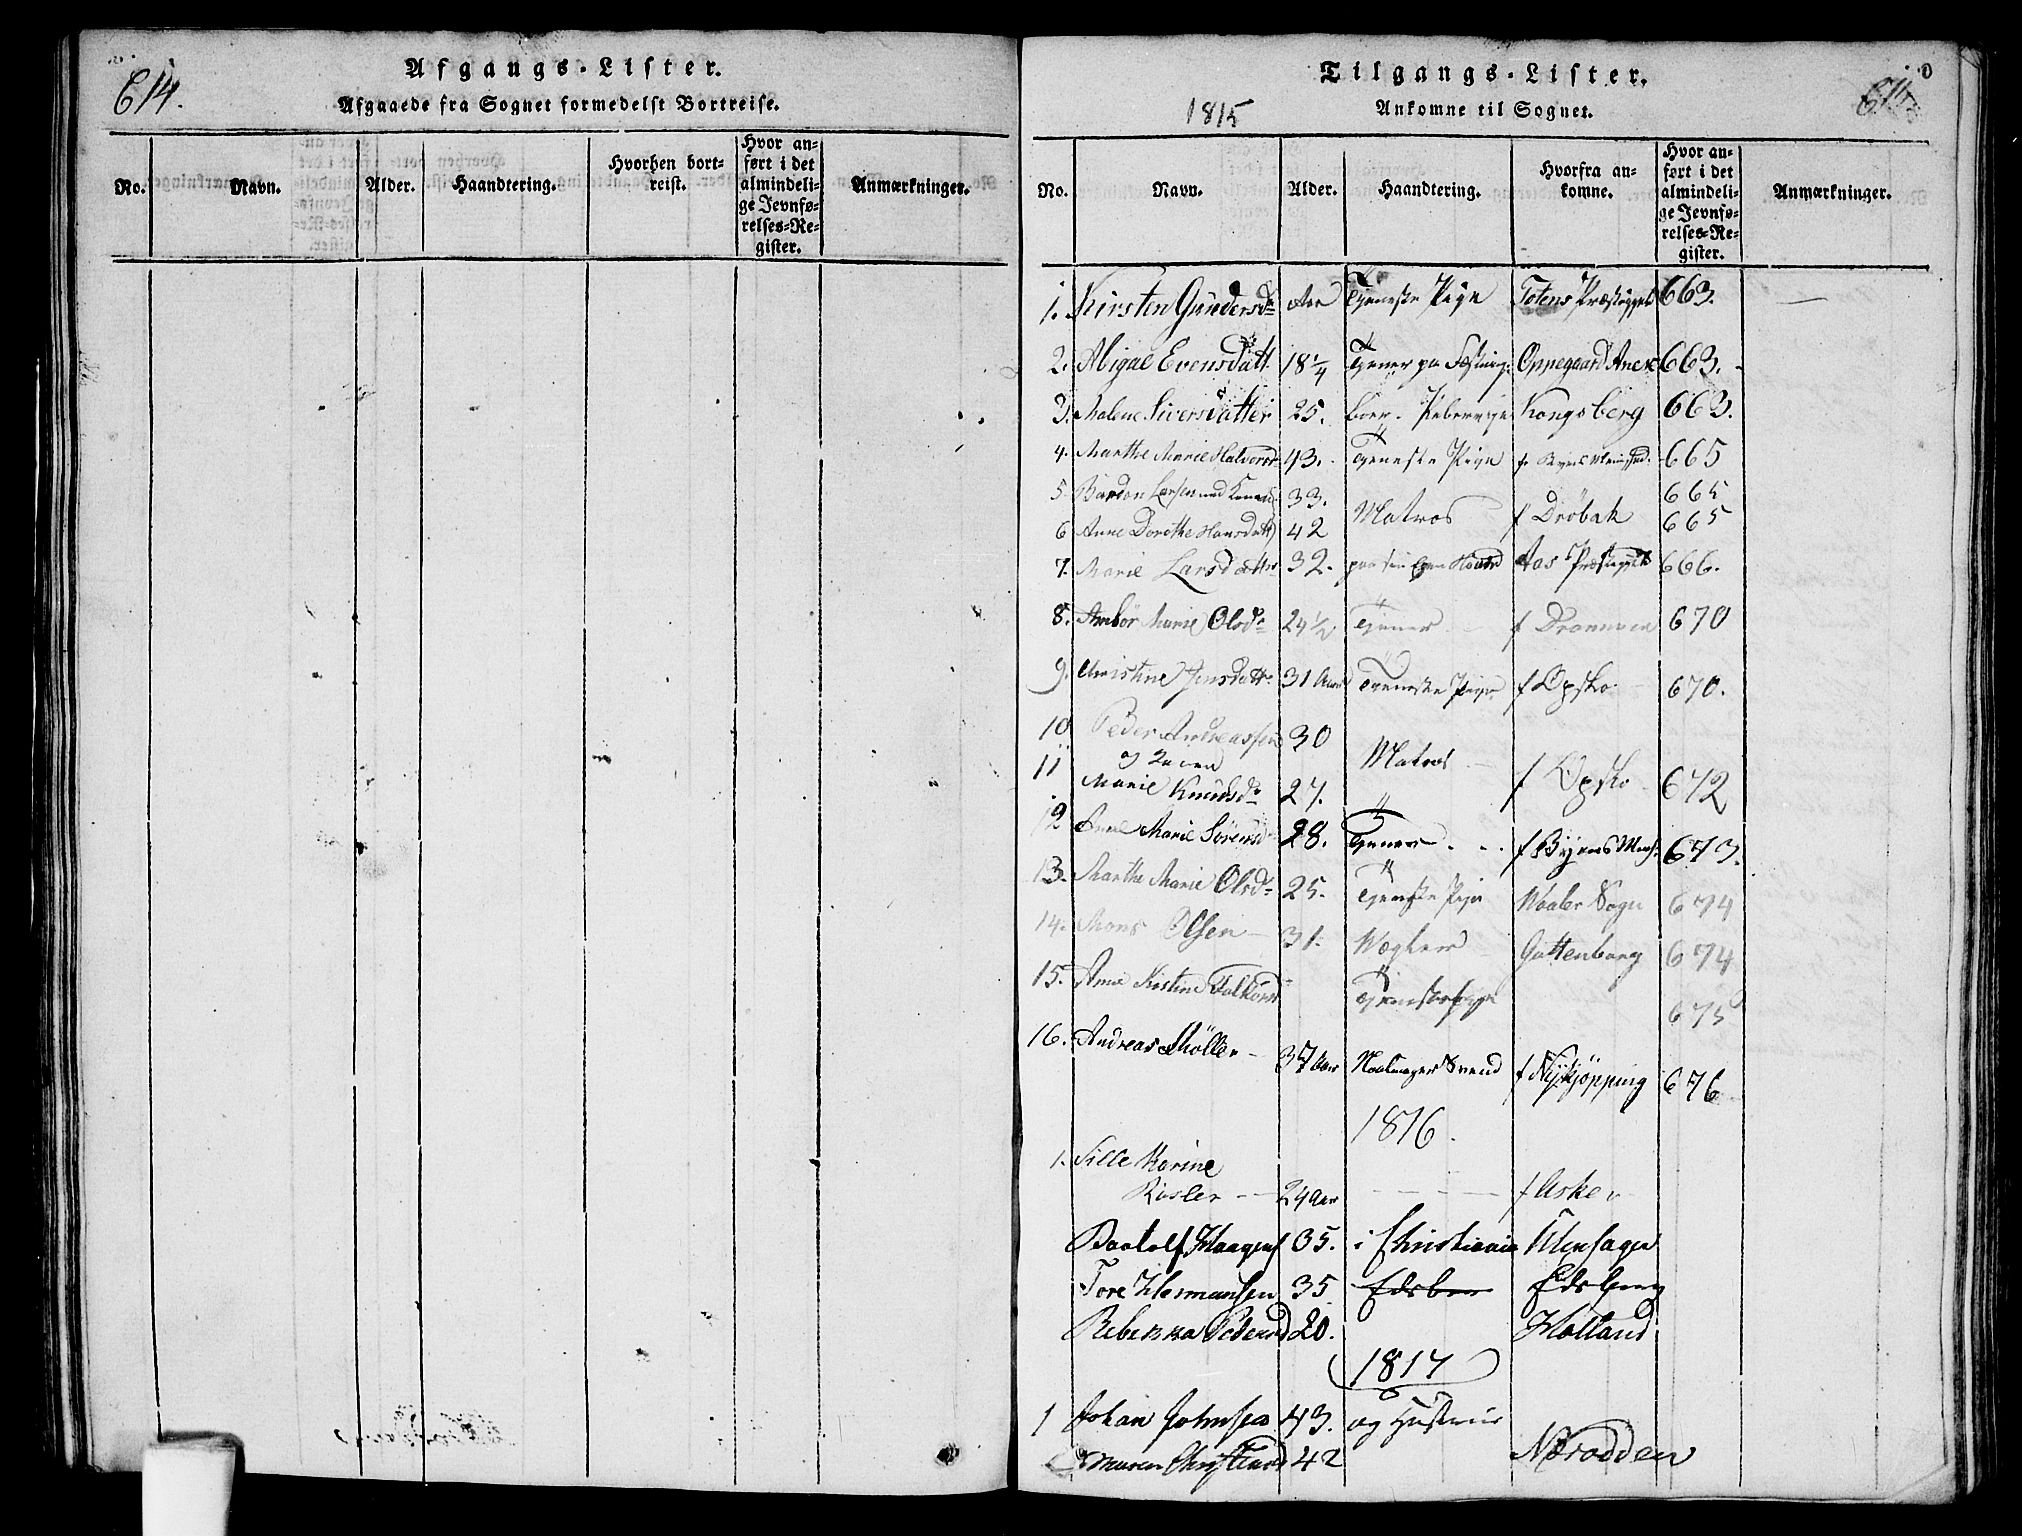 614.
Afgangs-Lister.
Afgaaede fra Sognet formedelst Bortreise.
No.
Navn.
Alder.
Haandtering.
Hvorhen bort-
reist.
Hvor an-
ført i det
almindeli-
ge Jevnfø-
relses-Re-
gister.
Anmærkninger.
Tilgangs-Lister.
1815
Ankomne til Sognet.
No.
Navn.
Alder.
Haandtering.
Hvorfra an-
komne.
Hvor an-
ført i det
almindeli-
ge Jevnfø-
relses-Re-
gister.
Anmærkninger.
1. Kirsten Gundersdr Tjeneste Pige Totens 663. —
2. Abigael Evensdatt. 18 1/4 Tjener paa Oppegaard Anex 663.
3. Malene Siversdatter 25. Kongsberg 663.
4. Marthe Marie Halvorsd 43. Tjeneste Pige 665
5. Larsen med 33. Matros f Dröbak 665
6 Anne Dorothe Hansdatt 42 665
7. Marie Larsdatter 32. paa sin Egen Haand Aas 666.
8. Marie Olsdr 24 1/2 Tjener f Drammen 670
9. Christine Jensdatt. 31 Aar Tjeneste Pige f Opslo 670.
10 Peder Andreassen 30 Matros f Opslo 672
og
11 Marie Knudsdr 27. "
12 Anne Marie Sörensd 28. Tjener f Byens 673.
13. Marthe Marie Olsdr 25. Tjeneste Pige Waaler Sogn 674
14. Mons Olsen 31. Wægter Gottenborg 674
15. Anne Kistine Tjenestepige 675
16. Andreas Möller 37 Aar Svend f Nykjöpping 676
1816.
1. Sille Karine
24 Aar f Asker
35. i Christiania Ullensager
Tore Hermansen 35 Edsberg
Rebekka Pedersd 20. Holland
1817
1 Johan Johnsen 43. og Hustrue
Maren 42 Næsodden